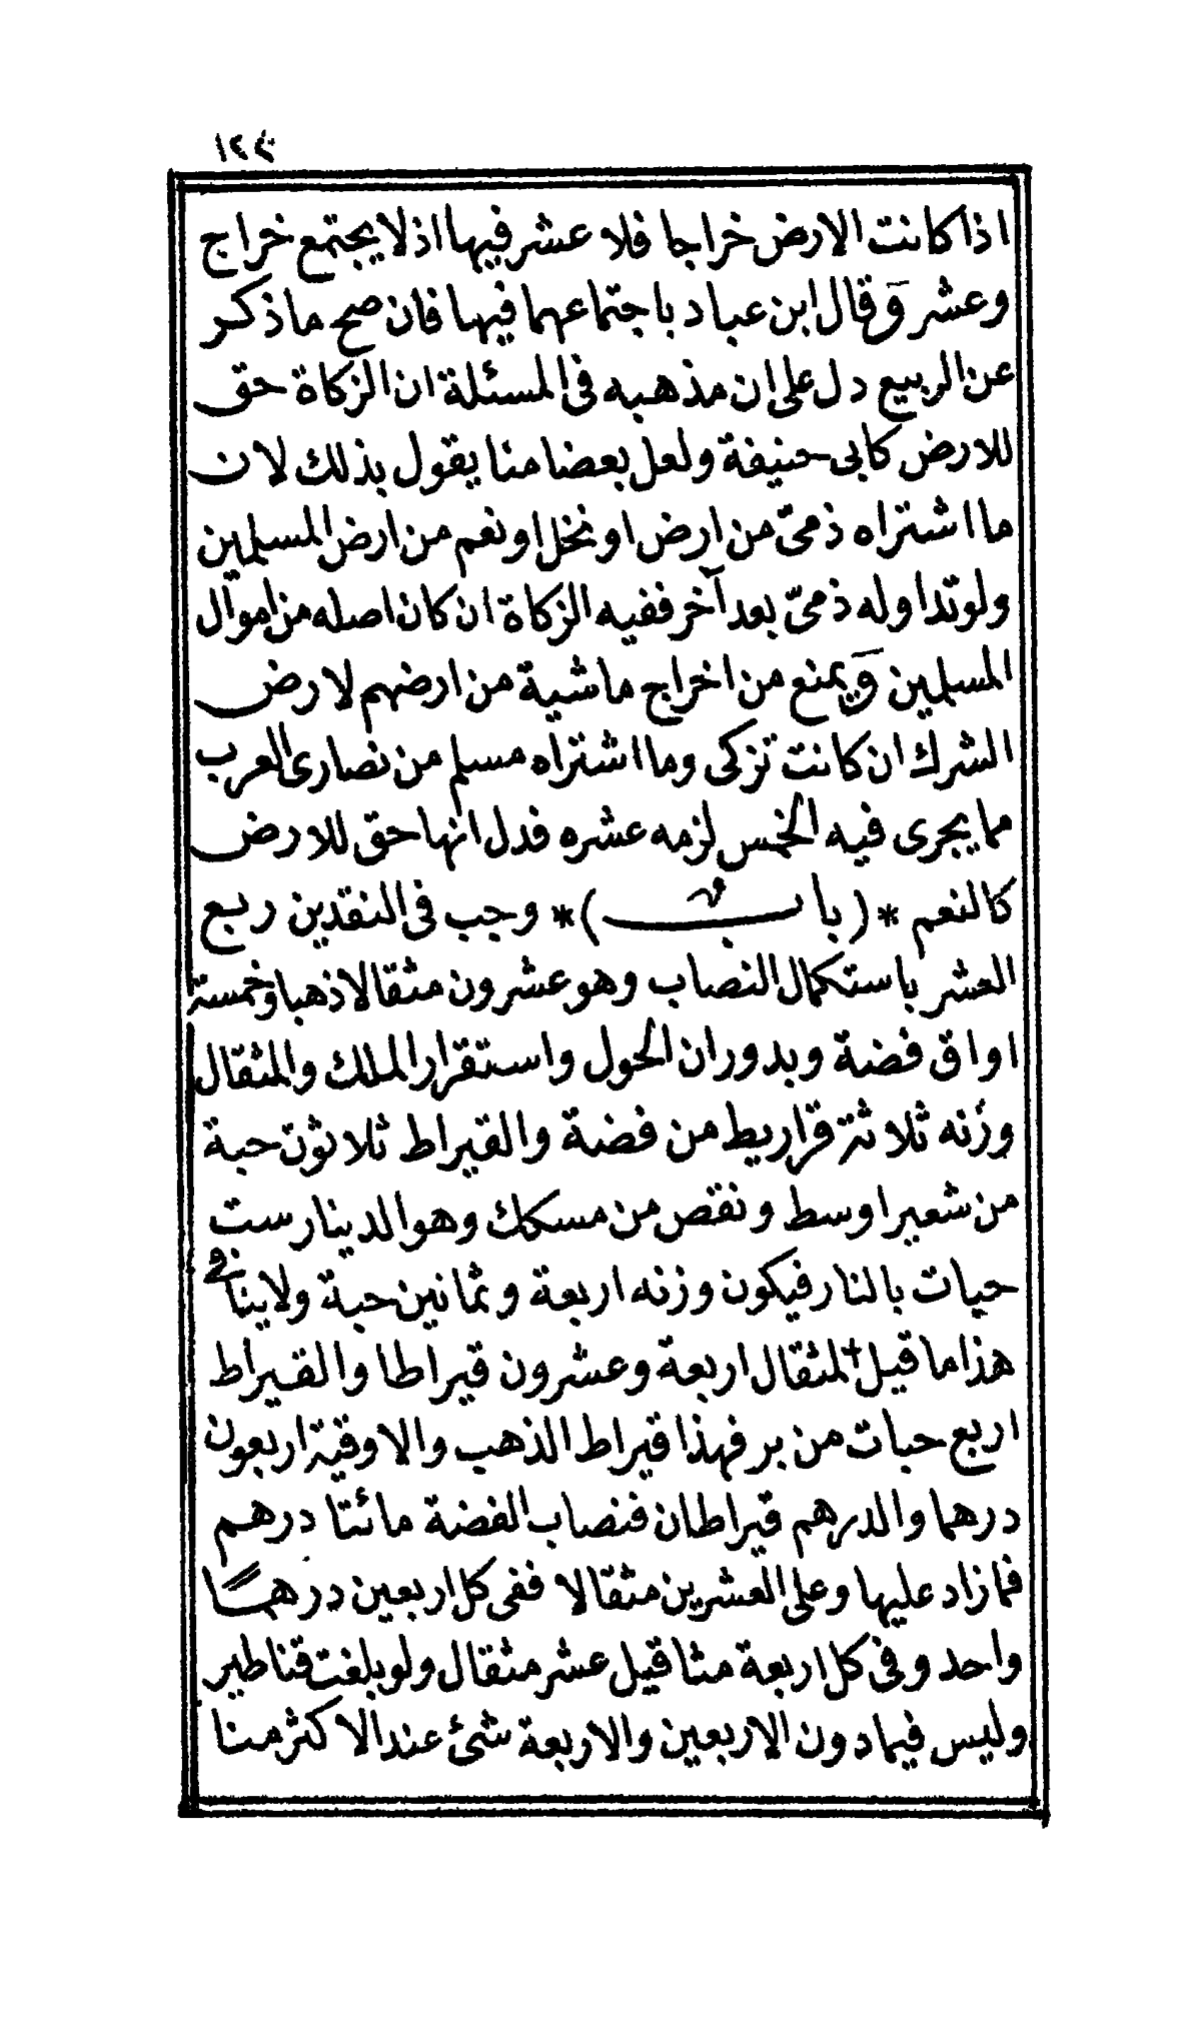 اذا كانت الارض خراجا فلا عشر فيها اذ لا يجتمع خراج
وعشر وقال ابن عباد باجتماعهما فيها فان صح ما ذكر
عن الربيع دل على ان مذهبه فى المسئلة ان الزكاة حق
للارض كابى حنيفة ولعل بعضا منا يقول بذلك لان
ما اشتراه ذمىّ من ارض او نخل او نعم من ارض المسلمين
ولو تداوله ذمىّ بعد آخر ففيه الزكاة ان كان اصله من اموال
المسلمين ويمنع من اخراج ماشية من ارضهم لارض
الشرك ان كانت تزكى وما اشتراه مسلم من نصارى العرب
مما يجرى فيه الخمس لزمه عشره فدل انها حق للارض
كالنعم *(باب)* وجب فى النقدين ربع
العشر باستكمال النصاب وهو عشرون مثقالا ذهبا وخمسة
اواق فضة وبدوران الحول واستقرار الملك والمثقال
وزنه ثلاثة قراريط من فضة والقيراط ثلاثون حبة
من شعير اوسط ونقص من مسكك وهو الدينار ست
حبات بالنار فيكون وزنه اربعة وثمانين حبة ولا ينافى
هذا ما قيل المثقال اربعة وعشرون قيراطا والقيراط
اربع حبات من بر فهذا قيراط الذهب والاوقية اربعون
درهما والدرهم قيراطان فنصاب الفضة مائتا درهم
فما زاد عليها وعلى العشرين مثقالا ففى كل اربعين درهما
واحد وفى كل اربعة مثاقيل عشر مثقال ولو بلغت قناطير
وليس فيما دون الاربعين والاربعة شئ عند الاكثر منا